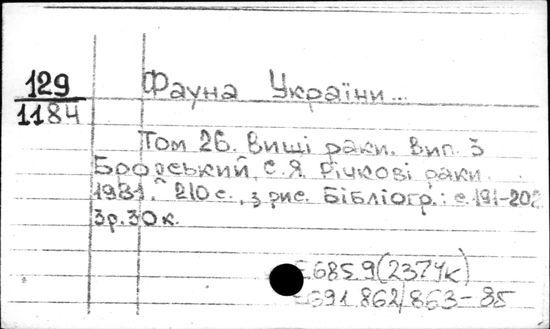 129
1184
Фауна України...
Том 26. Вищі раки. Вип. 3
Бродський, С.Я. Річкові раки.
1981. - 210 с., з рис. Бібліогр.: с. 191-202
3р.30к.
Е685.9(2374к)
Е691.862/863-35